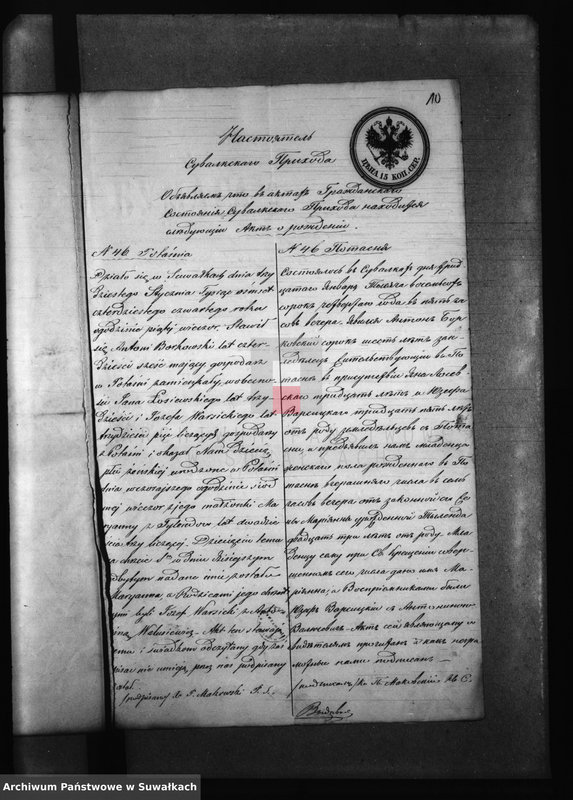 10
Настоятель
Сувалкскаго Прихода
ЦѢНА 15 КОП. СЕР.
Объявляемъ что въ актахъ Гражданскаго
Состоянія Сувалкскаго Прихода находится
слѣдующій Актъ о рожденіи.
N 46 Potaśnia
Działo się w Suwałkach dnia trzy
dziestego Stycznia Tysiąc ośmset
czterdziestego czwartego roku
o godzinie piątej wieczor. Stawił
się Antoni Borkowski lat czter
dzieście sześć mający gospodarz
w Potaśni zamieszkały, w obecno
ści Jana Łosiewskiego lat trzy
dzieści i Jozefa Warsickiego lat
trzydzieści pięć liczących gospodarzy
z Potaśni i okazał Nam Dziecię
płci żeńskiej urodzone w Potaśni
dnia wczorajszego o godzinie siód
mej wieczor z jego małżonki Ma
ryanny z lat dwadzie
ścia trzy liczącej. Dziecięciu temu
na chrzcie Sm w dniu dzisiejszym
odbytym nadane imie zostało
Maryanna, a Rodzicami jego chrzest
nymi byli Jozef Warsicki z Anto
niną Walusiewicz. Akt ten stawają
cemu i świadkom odczytany gdyż
pisać nie umieją, przez nas podpisany
został.
/podpisany/ Makowski
N 46 Потасня
Состоялось въ Сувалкахъ дня трид
цатаго Января Тысяча восемьсотъ
сорокъ четвертаго года въ пять ча
совъ вечера. Явился Антонъ Бор
ковскій сорокъ шесть лѣтъ зем
ледѣлецъ жительствующій въ По
таснѣ въ присутствіи Яна Лосев
скаго тридцать лѣтъ и Юзефа
Варсицкаго тридцать пять лѣтъ
отъ роду земледѣльцевъ съ Потас
ни, и предъявилъ намъ младенца
женскаго пола рожденнаго въ По
таснѣ вчерашняго числа въ семь
часовъ вечера отъ законной его Же
ны Маріянны урожденной
двадцать три лѣтъ отъ роду. Мла
денцу сему при Св. крещеніи совер
шенномъ сего числа дано имя Ма
ріянна, а Воспріемниками были
Юзефъ Варсицкій съ Антониною
Валюсевичъ. Актъ сей явившемуся и
свидѣтелямъ прочитанъ и какъ негра
мотнымъ нами подписанъ —
/подписалъ/ Маковскій
Archiwum Państwowe w Suwałkach